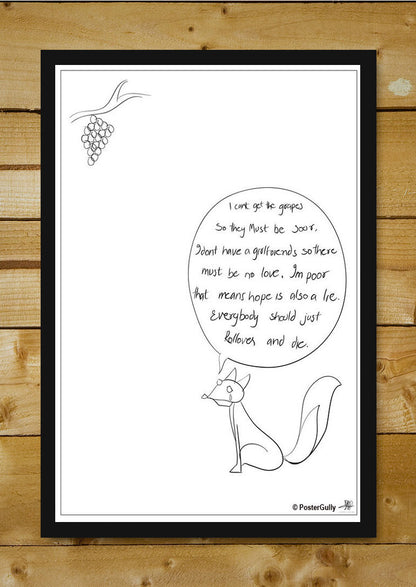 I cant get the grapes
So they Must be sour.
I dont have a girlfriends so there
must be no love. I'm poor
that means hope is also a lie.
Everybody should just
Rollover and die.
© PosterGully